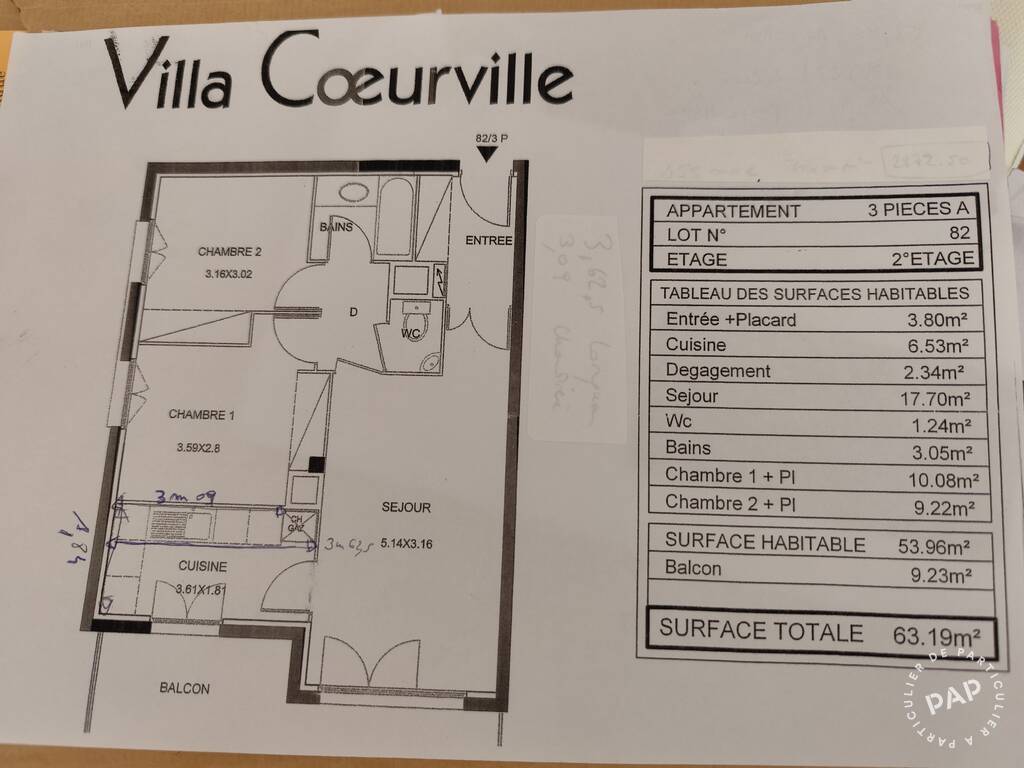 Villa Cœurville
82/3 P
CHAMBRE 2
3.16X3.02
BAINS
ENTREE
D
WC
CHAMBRE 1
3.59X2.8
3m09
CH
GAZ
SEJOUR
5.14X3.16
3m63,5
1,84
CUISINE
3.61X1.81
BALCON
3,09
2872.50
APPARTEMENT 3 PIECES A
LOT N° 82
ETAGE 2°ETAGE
TABLEAU DES SURFACES HABITABLES
Entrée +Placard 3.80m²
Cuisine 6.53m²
Degagement 2.34m²
Sejour 17.70m²
Wc 1.24m²
Bains 3.05m²
Chambre 1 + Pl 10.08m²
Chambre 2 + Pl 9.22m²
SURFACE HABITABLE 53.96m²
Balcon 9.23m²
SURFACE TOTALE 63.19m²
DE PARTICULIER À PARTICULIER
PAP